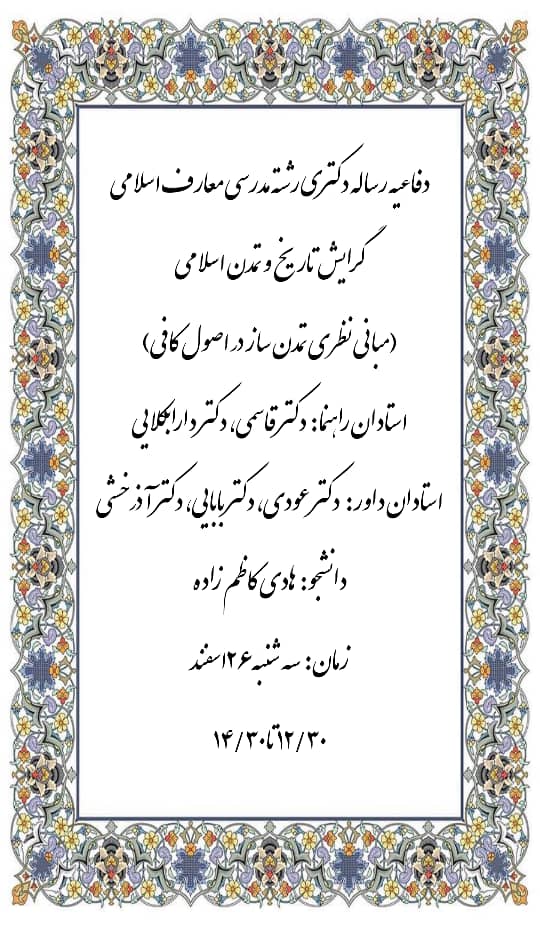 دفاعیه رساله دکتری رشته مدرسی معارف اسلامی
گرایش تاریخ و تمدن اسلامی
(مبانی نظری تمدن ساز در اصول کافی)
استادان راهنما: دکتر قاسمی، دکتر دارابکلایی
استادان داور: دکتر عودی، دکتر بابایی، دکتر آذرخشی
دانشجو: هادی کاظم زاده
زمان: سه شنبه ۲۶ اسفند
۱۲/۳۰ تا ۱۴/۳۰